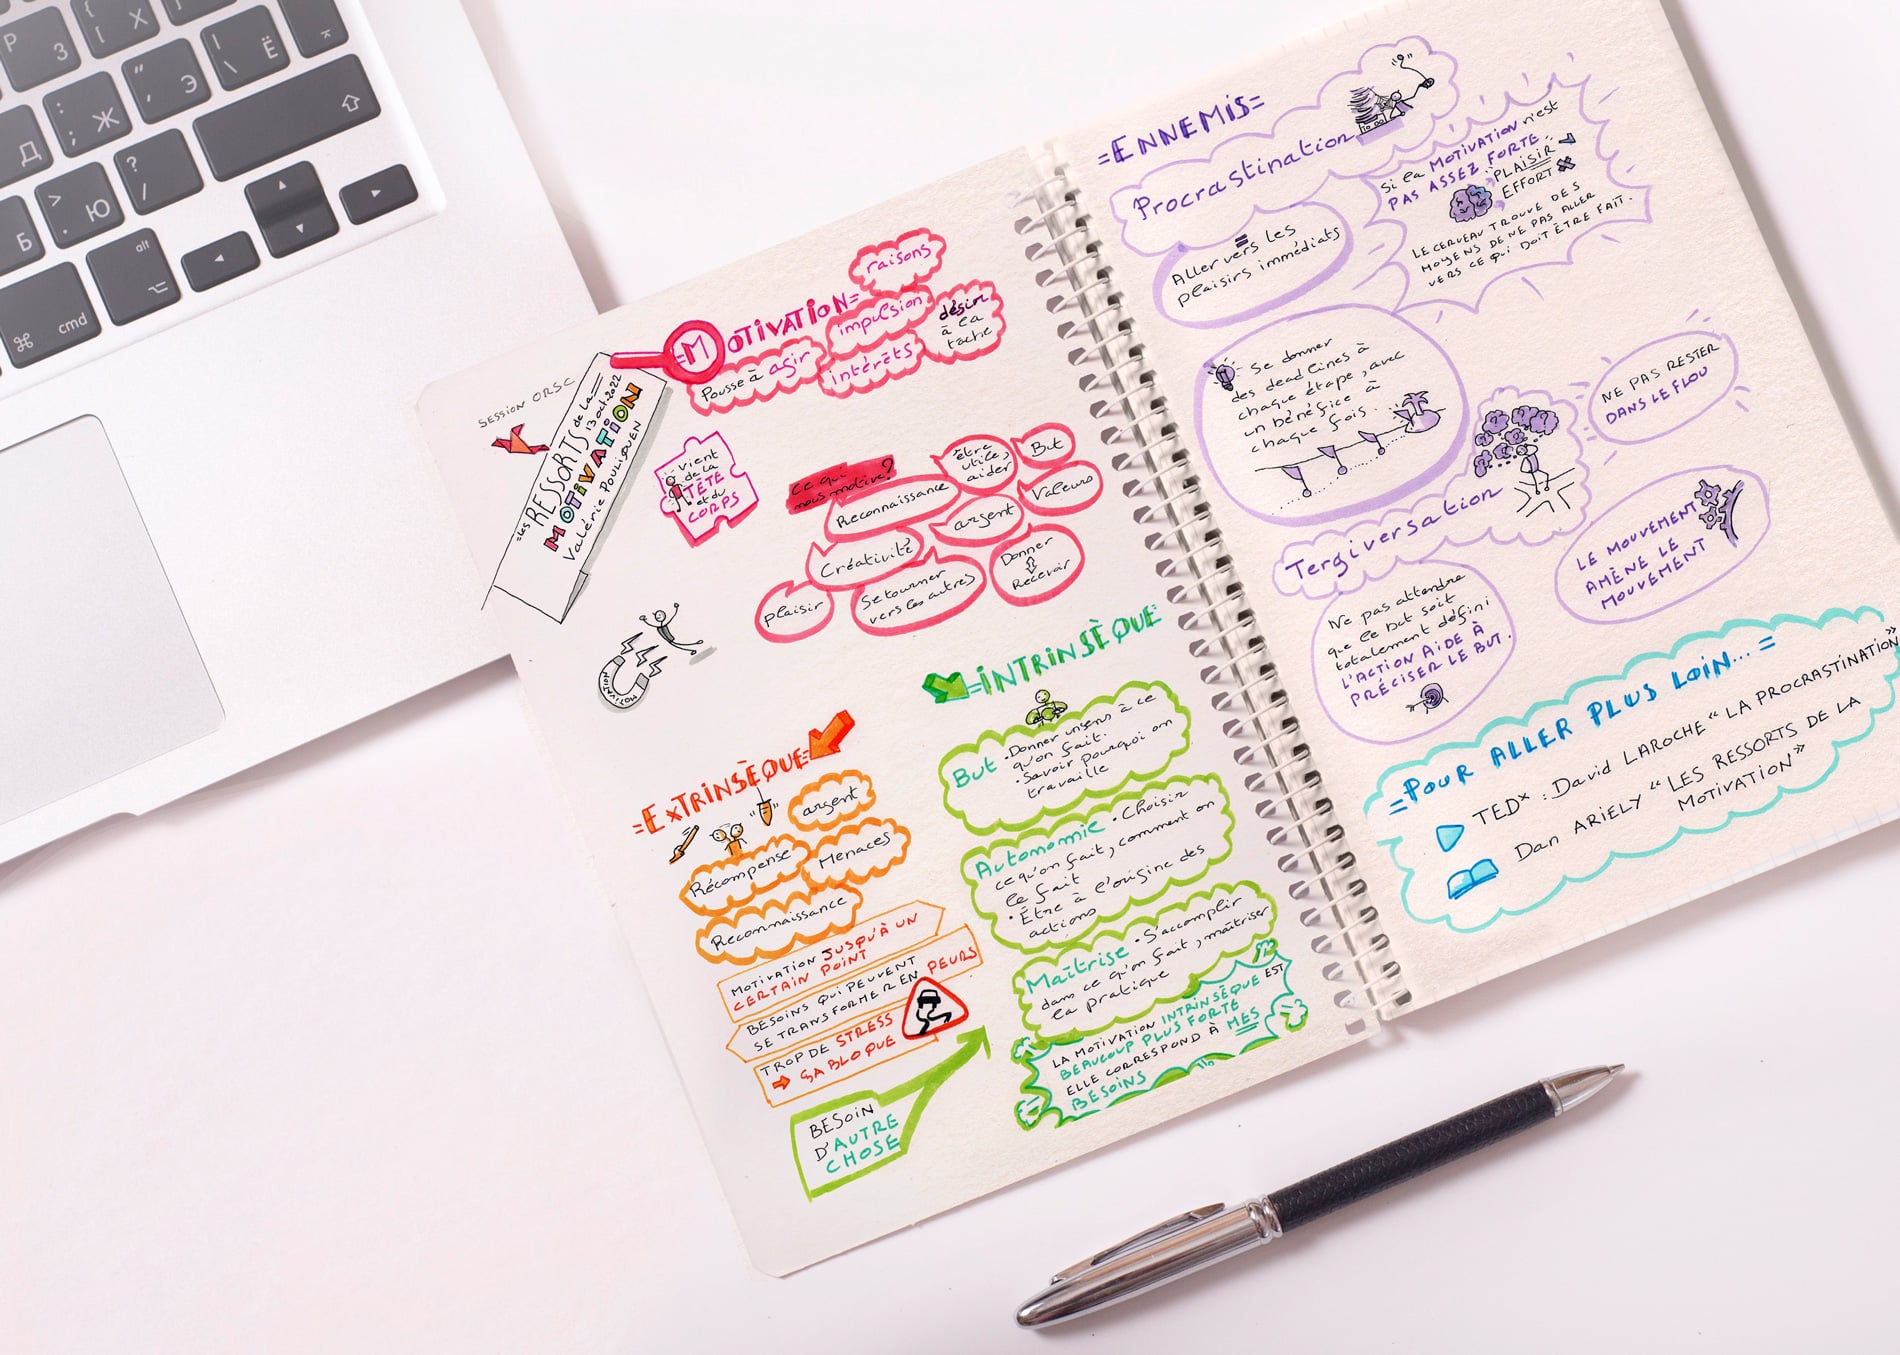 SESSION ORSC
=Les RESSORTS de la=
MOTIVATION
13 oct. 2022
Valérie POULIQUEN
=MOTIVATION=
Pousse à agir
raisons
impulsion
intérêts
désir
à la
tache
vient
de la
TÊTE
et du
CORPS
Ce qui
nous motive?
Reconnaissance
être
utile,
aider
But
Valeurs
argent
Créativité
Donner
Recevoir
plaisir
Se tourner
vers les autres
MOTIVATION
=EXTRINSÈQUE=
argent
Récompense
Menaces
Reconnaissance
MOTIVATION JUSQU'À UN
CERTAIN POINT
BESOINS QUI PEUVENT
SE TRANSFORMER EN PEURS
TROP DE STRESS
ÇA BLOQUE
BESOIN
D'AUTRE
CHOSE
=INTRINSÈQUE=
But • Donner un sens à ce
qu'on fait.
• Savoir pourquoi on
travaille
Autonomie • Choisir
ce qu'on fait, comment on
le fait
• Être à l'origine des
actions
Maîtrise • S'accomplir
dans ce qu'on fait, maîtriser
la pratique
LA MOTIVATION INTRINSÈQUE EST
BEAUCOUP PLUS FORTE
ELLE CORRESPOND À MES
BESOINS
=ENNEMIS=
Procrastination
=
Aller vers les
plaisirs immédiats
Si la MOTIVATION n'est
PAS ASSEZ FORTE
PLAISIR
EFFORT
LE CERVEAU TROUVE DES
MOYENS DE NE PAS ALLER
VERS CE QUI DOIT ÊTRE FAIT.
Se donner
des deadlines à
chaque étape, avec
un bénéfice à
chaque fois.
Tergiversation
NE PAS RESTER
DANS LE FLOU
Ne pas attendre
que le but soit
totalement défini
L'ACTION AIDE À
PRÉCISER LE BUT.
LE MOUVEMENT
AMÈNE LE
MOUVEMENT
=POUR ALLER PLUS LOIN...=
TEDx : David LAROCHE "LA PROCRASTINATION"
Dan ARIELY "LES RESSORTS DE LA
MOTIVATION"
Р
З
Х
[
{
Ъ
]
\
Ё
Д
;
:
Ж
"
'
Э
Б
>
.
Ю
?
/
alt
cmd